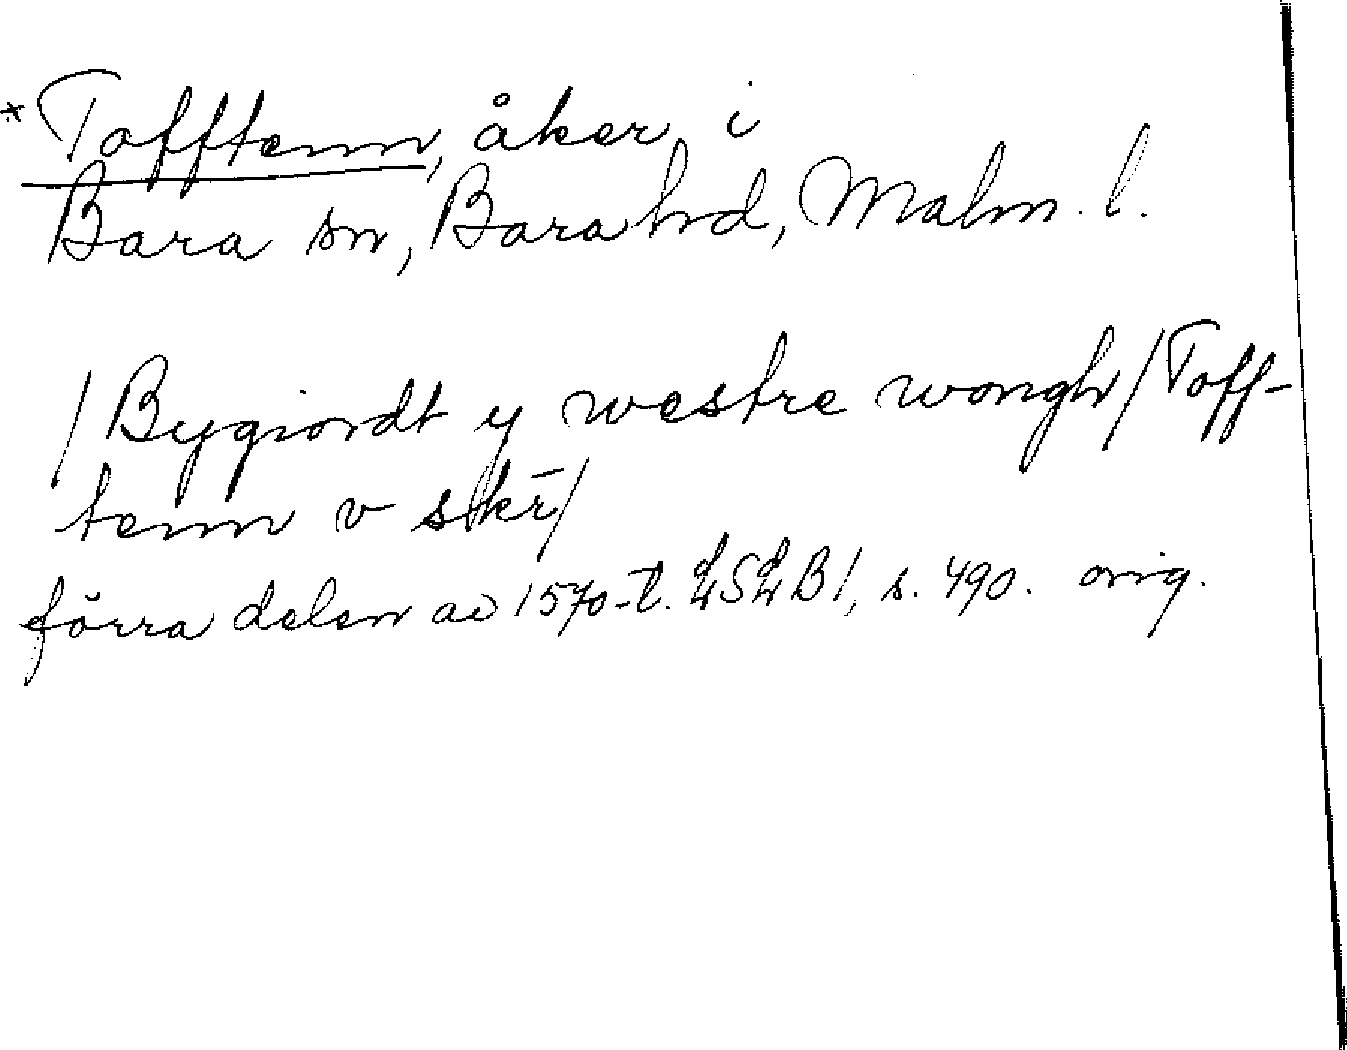 *Tofftenn, åker i
Bara sn, Bara hd, Malm. l.
/Bygiordt y westre wongh/Toff-
tenn v skr/
förra delen av 1570-t. LSLB1, s. 490. orig.